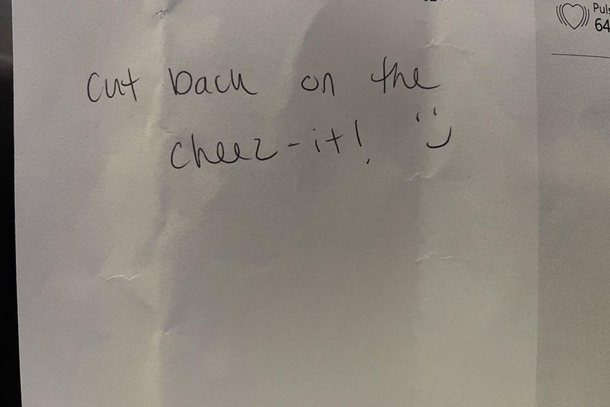 cut back on the
cheez-it! :)
Puls
64